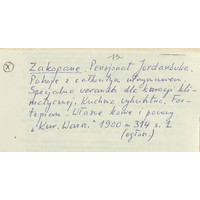 19
x Zakopane. Pensjonat Jordanówka.
Pokoje z całkowitym utrzymaniem.
Specjalna veranda dla kuracji kli-
matycznej. Kuchnia wykwintna. For-
tepian. Własne konie i powozy
"Kur. Warsz." 1900 n 314 s. 2
(ogłosz.)